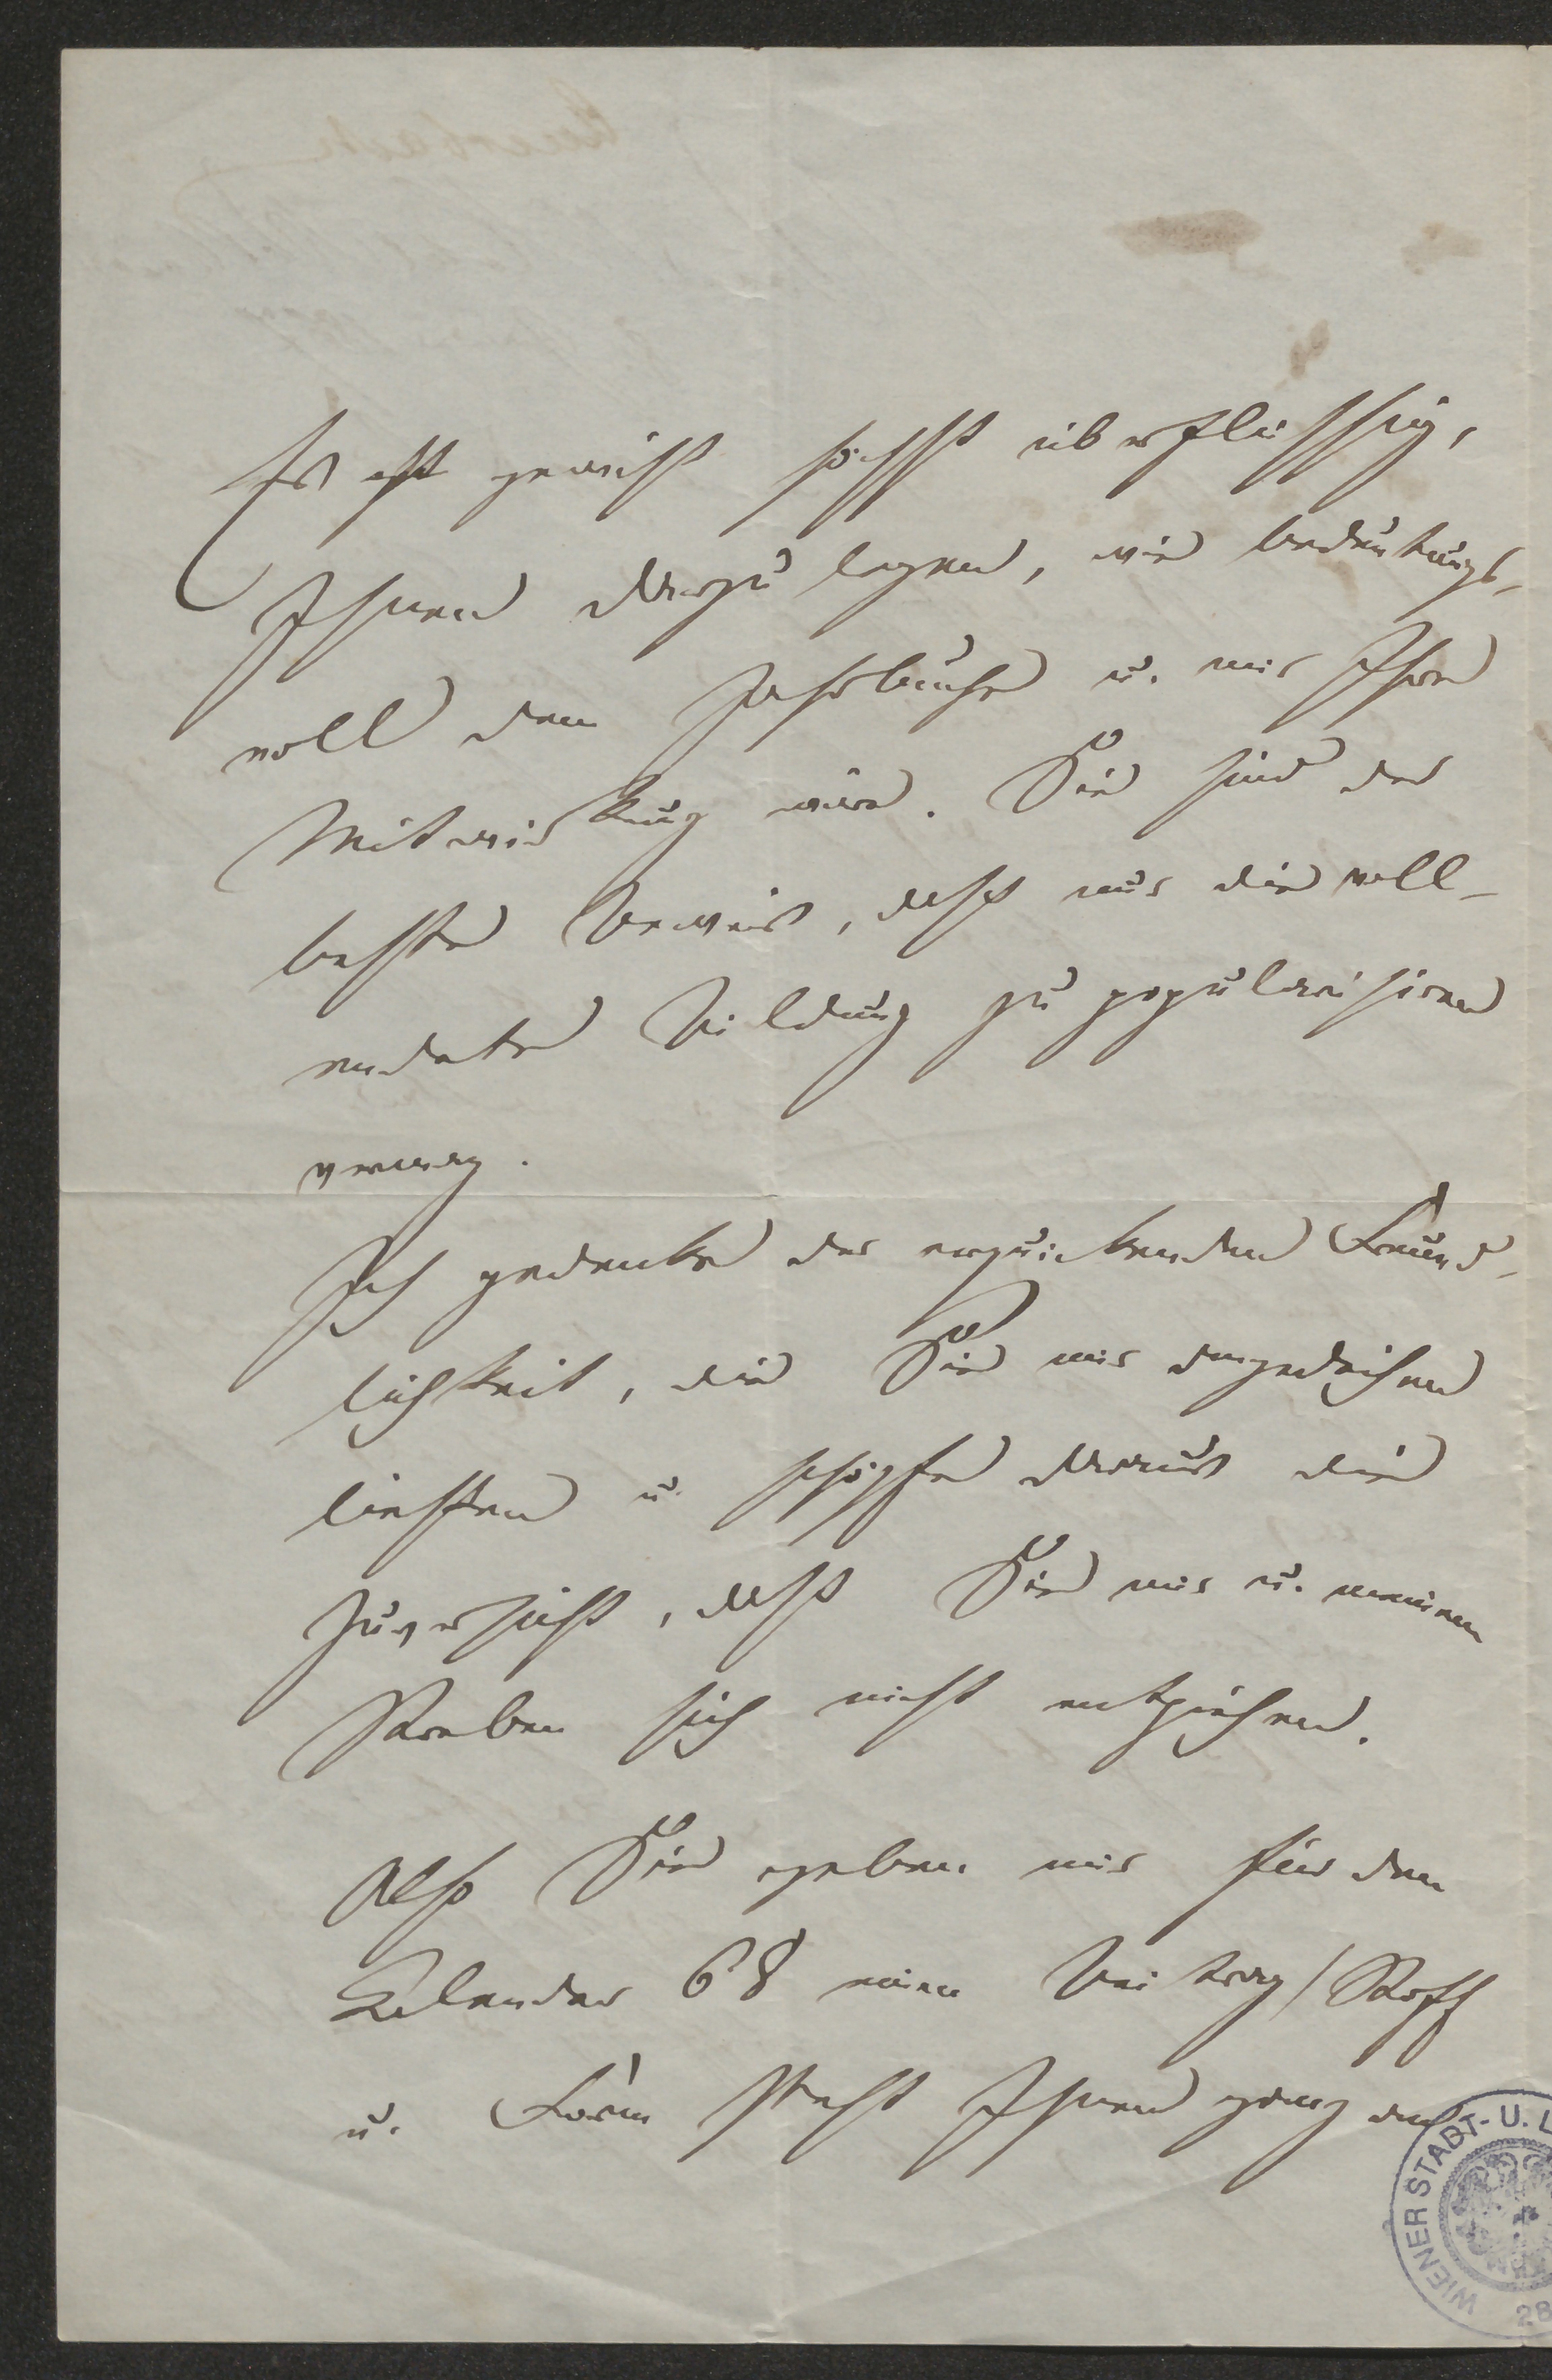 Es ist gewiß höchst überflüssig,
Ihnen darzulegen, wie bedeutungs-
voll dem Jahrbuche u. mir Ihre
Mitwirkung wäre. Sie sind der
beste Beweis, daß nur die voll-
endete Bildung zu popularisiren
vermag.
Ich gedenke der erquickenden Freund-
lichkeit, die Sie mir angedeihen
ließen u. schöpfe daraus die
Zuversicht, daß Sie mir u. meinem
Streben sich nicht entziehen.
Also Sie geben mir für den
Kalender 68 einen Beitrag / Stoff
u. Form steht Ihnen ganz
WIENER STADT- U. L
28